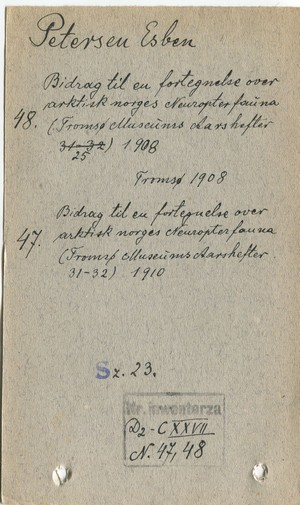 Petersen Esben
Bidrag til en fortegnelse over
arktisk norges Neuropterfauna
48. (Tromsø Museums Aarshefter
31-32) 1908
25
Tromsø 1908
Bidrag til en fortegnelse over
47. arktisk norges Neuropterfauna
(Tromsø Museums Aarshefter
31-32) 1910
Sz. 23.
Nr. inwentarza
D2-C XXVII
N. 47, 48